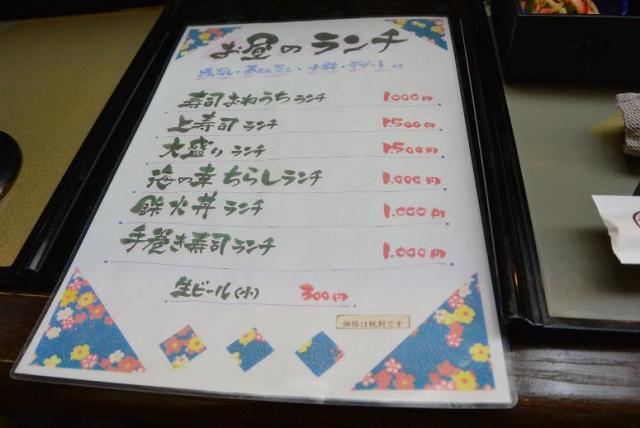 お昼のランチ
汁なし・茶わんむし・小鉢・デザート付
寿司まねうちランチ 1000円
上寿司ランチ 1.500円
大盛りランチ 1.500円
海の幸ちらしランチ 1.000円
鉄火丼ランチ 1.000円
手巻き寿司ランチ 1.000円
生ビール(小) 300円
価格は税別です